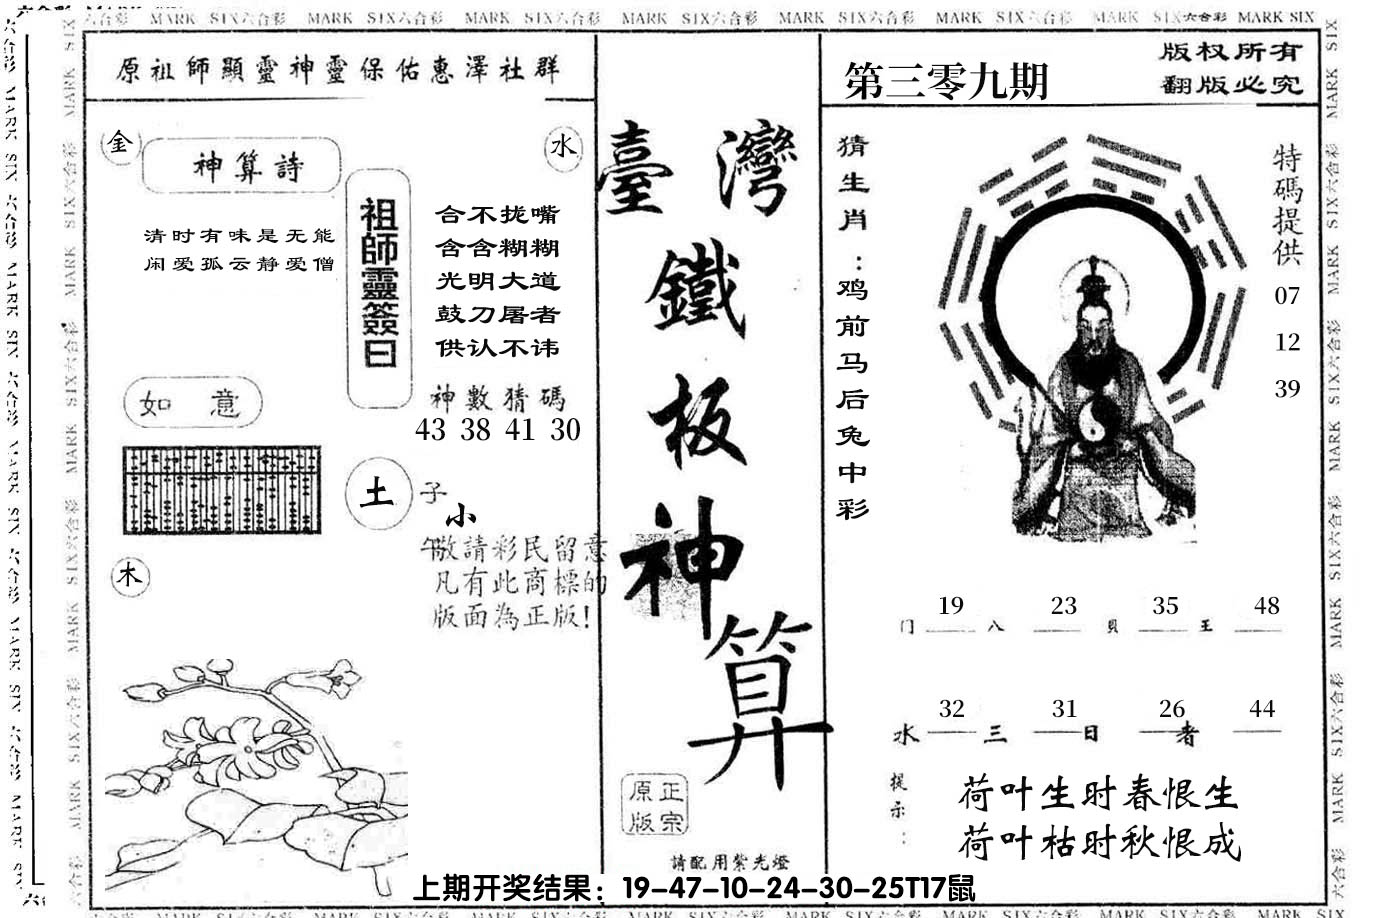 MARK SIX六合彩 MARK SIX六合彩 MARK SIX六合彩 MARK SIX六合彩 MARK SIX六合彩 MARK SIX六合彩 MARK SIX六合彩 MARK SIX
原祖師顯靈神靈保佑惠澤社群
金
神算詩
水
清时有味是无能
闲爱孤云静爱僧
祖師靈簽曰
合不拢嘴
含含糊糊
光明大道
鼓刀屠者
供认不讳
神數猜碼
43 38 41 30
如意
土
子
小
午
敬請彩民留意
凡有此商標的
版面為正版!
木
臺灣
鐵
板
神
算
正宗
原版
請配用紫光燈
第三零九期
版权所有
翻版必究
猜生肖:鸡前马后兔中彩
特碼提供
07
12
39
19 23 35 48
门 八 貝 王
32 31 26 44
水 三 日 者
提示:
荷叶生时春恨生
荷叶枯时秋恨成
上期开奖结果：19-47-10-24-30-25T17鼠